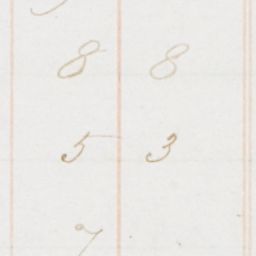 8 8
5 3
7